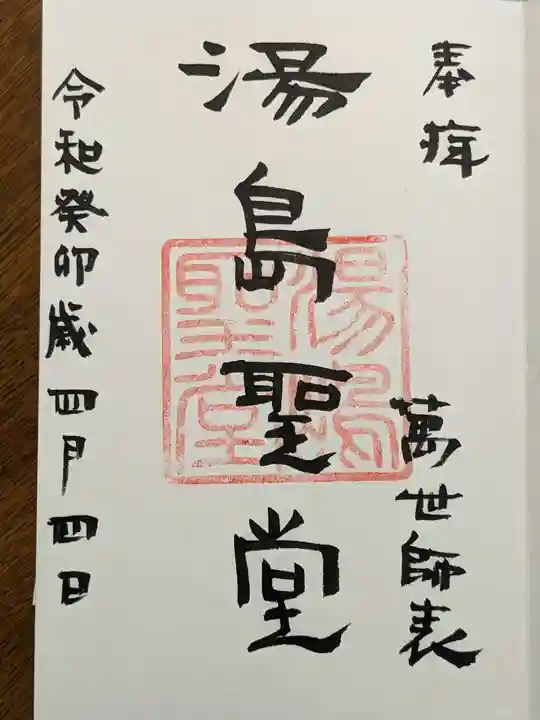 奉拝
萬世師表
湯島聖堂
湯島聖堂
令和癸卯歳四月四日